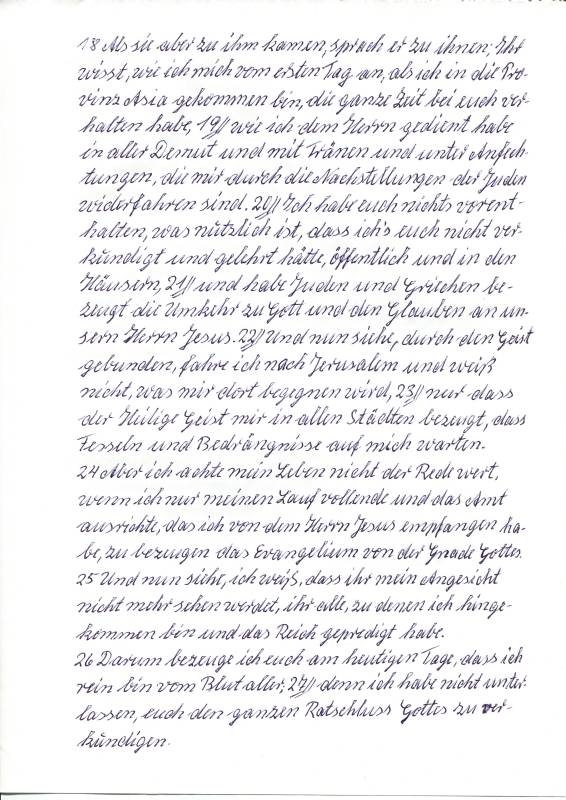 18 Als sie aber zu ihm kamen, sprach er zu ihnen; Ihr
wisst, wie ich mich vom ersten Tag an, als ich in die Pro-
vinz Asia gekommen bin, die ganze Zeit bei euch ver-
halten habe, 19// wie ich dem Herrn gedient habe
in aller Demut und mit Tränen und unter Anfech-
tungen, die mir durch die Nachstellungen der Juden
widerfahren sind. 20// Ich habe euch nichts vorent-
halten, was nützlich ist, dass ich's euch nicht ver-
kündigt und gelehrt hätte, öffentlich und in den
Häusern, 21// und habe Juden und Griechen be-
zeugt die Umkehr zu Gott und den Glauben an un-
sern Herrn Jesus. 22// Und nun siehe, durch den Geist
gebunden, fahre ich nach Jerusalem und weiß
nicht, was mir dort begegnen wird, 23// nur dass
der Heilige Geist mir in allen Städten bezeugt, dass
Fesseln und Bedrängnisse auf mich warten.
24 Aber ich achte mein Leben nicht der Rede wert,
wenn ich nur meinen Lauf vollende und das Amt
ausrichte, das ich von dem Herrn Jesus empfangen ha-
be, zu bezeugen das Evangelium von der Gnade Gottes.
25 Und nun siehe, ich weiß, dass ihr mein Angesicht
nicht mehr sehen werdet, ihr alle, zu denen ich hinge-
kommen bin und das Reich gepredigt habe.
26 Darum bezeuge ich euch am heutigen Tage, dass ich
rein bin vom Blut aller; 27// denn ich habe nicht unter-
lassen, euch den ganzen Ratschluss Gottes zu ver-
kündigen.